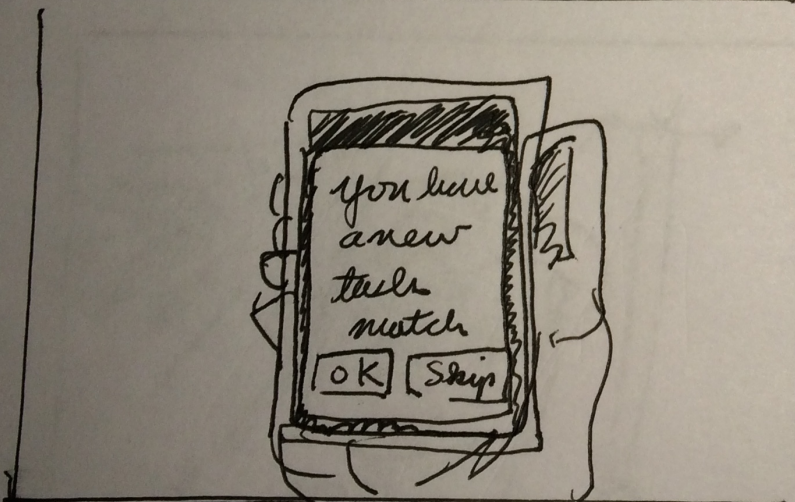 you have
a new
task
match
OK
Skip